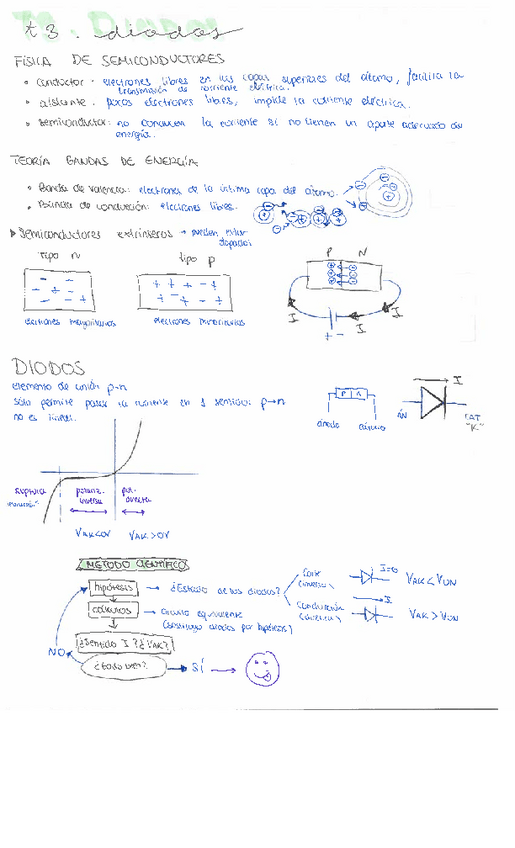 t3. diodos
FÍSICA DE SEMICONDUCTORES
• conductor. electrones libres en las capas superiores del átomo, facilita la
transmisión de corriente eléctrica.
• aislante. pocos electrones libres, impide la corriente eléctrica.
• semiconductor: no conducen la corriente si no tienen un aporte adecuado de
energía.
TEORÍA BANDAS DE ENERGÍA
• Banda de valencia: electrones de la última capa del átomo.
• Banda de conducción: electrones libres.
▶ Semiconductores extrínsecos → pueden estar
dopados
tipo n
tipo p
electrones mayoritarios
electrones minoritarios
P N
I
I
I
+ -
DIODOS
elemento de unión p→n
sólo permite pasar la corriente en 1 sentido: p→n
no es lineal.
P N
ánodo
cátodo
I
ÁN
CAT
"K"
ruptura
polariz.
inversa
pol.
directa
VAK<0V
VAK>0V
MÉTODO CIENTÍFICO
hipótesis → ¿Estado de los diodos?
Corte
(inversa)
I=0
VAK<VON
Conducción
(directa)
I
VAK>VON
cálculos → Circuito equivalente
(sustituyo diodos por hipótesis)
¿Sentido I? ¿VAK?
NO
¿Todo bien? → SÍ →